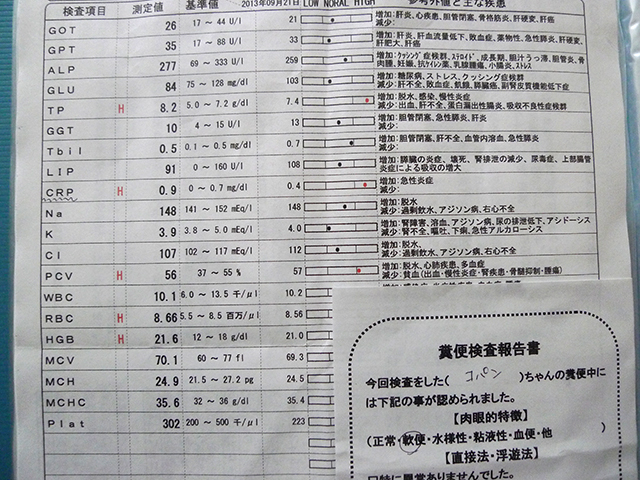 検査項目 測定値 基準値 2013年09月21日 LOW NORAL HIGH 参考外値と主な疾患
GOT 26 17 ～ 44 U/l 21 増加:肝炎、心疾患、胆管閉塞、骨格筋炎、肝硬変、肝癌
減少:
GPT 35 17 ～ 88 U/l 33 増加:肝炎、肝血流量低下、敗血症、薬物性、急性膵炎、肝硬変、肝肥大、肝癌
減少:
ALP 277 69 ～ 333 U/l 259 増加:クッシング症候群、ステロイド、成長期、胆汁うっ滞、胆管炎、骨肉腫、妊娠、抗けいれん薬、乳腺腫瘍、小腸炎、ストレス
GLU 84 75 ～ 128 mg/dl 103 増加:糖尿病、ストレス、クッシング症候群
減少:肝不全、敗血症、飢餓、膵臓癌、副腎皮質機能低下症
TP H 8.2 5.0 ～ 7.2 g/dl 7.4 増加:脱水、感染、慢性炎症
減少:出血、肝不全、蛋白漏出性腸炎、吸収不良症候群
GGT 10 4 ～ 15 U/l 13 増加:胆管閉塞、急性膵炎、肝炎
減少:
Tbil 0.5 0.1 ～ 0.5 mg/dl 0.7 増加:胆管閉塞、肝不全、血管内溶血、急性膵炎
減少:
LIP 91 0 ～ 160 U/l 108 増加:膵臓の炎症、壊死、腎排泄の減少、尿毒症、上部腸管炎症による吸収の増大
CRP H 0.9 0 ～ 0.7 mg/dl 0.4 増加:急性炎症
減少:
Na 148 141 ～ 152 mEq/l 148 増加:脱水
減少:過剰飲水、アジソン病、右心不全
K 3.9 3.8 ～ 5.0 mEq/l 4.0 増加:腎障害、溶血、アジソン病、尿の排泄低下、アシドーシス
減少:腎不全、嘔吐、下痢、急性アルカローシス
Cl 107 102 ～ 117 mEq/l 112 増加:脱水、
減少:過剰飲水、アジソン病、右心不全
PCV H 56 37 ～ 55 % 57 増加:脱水、心肺疾患、多血症
減少:貧血(出血・慢性炎症・腎疾患・骨髄抑制・腫瘍)
WBC 10.1 6.0 ～ 13.5 千/μl 10.2
RBC H 8.66 5.5 ～ 8.5 百万/μl 8.56
HGB H 21.6 12 ～ 18 g/dl 21.0
MCV 70.1 60 ～ 77 fl 69.3
MCH 24.9 21.5 ～ 27.2 pg 24.5
MCHC 35.6 32 ～ 36 g/dl 35.4
Plat 302 200 ～ 500 千/μl 223
糞便検査報告書
今回検査をした( コパン )ちゃんの糞便中に
は下記の事が認められました。
【肉眼的特徴】
(正常・軟便・水様性・粘液性・血便・他 )
【直接法・浮遊法】
口特に異常ありませんでした。